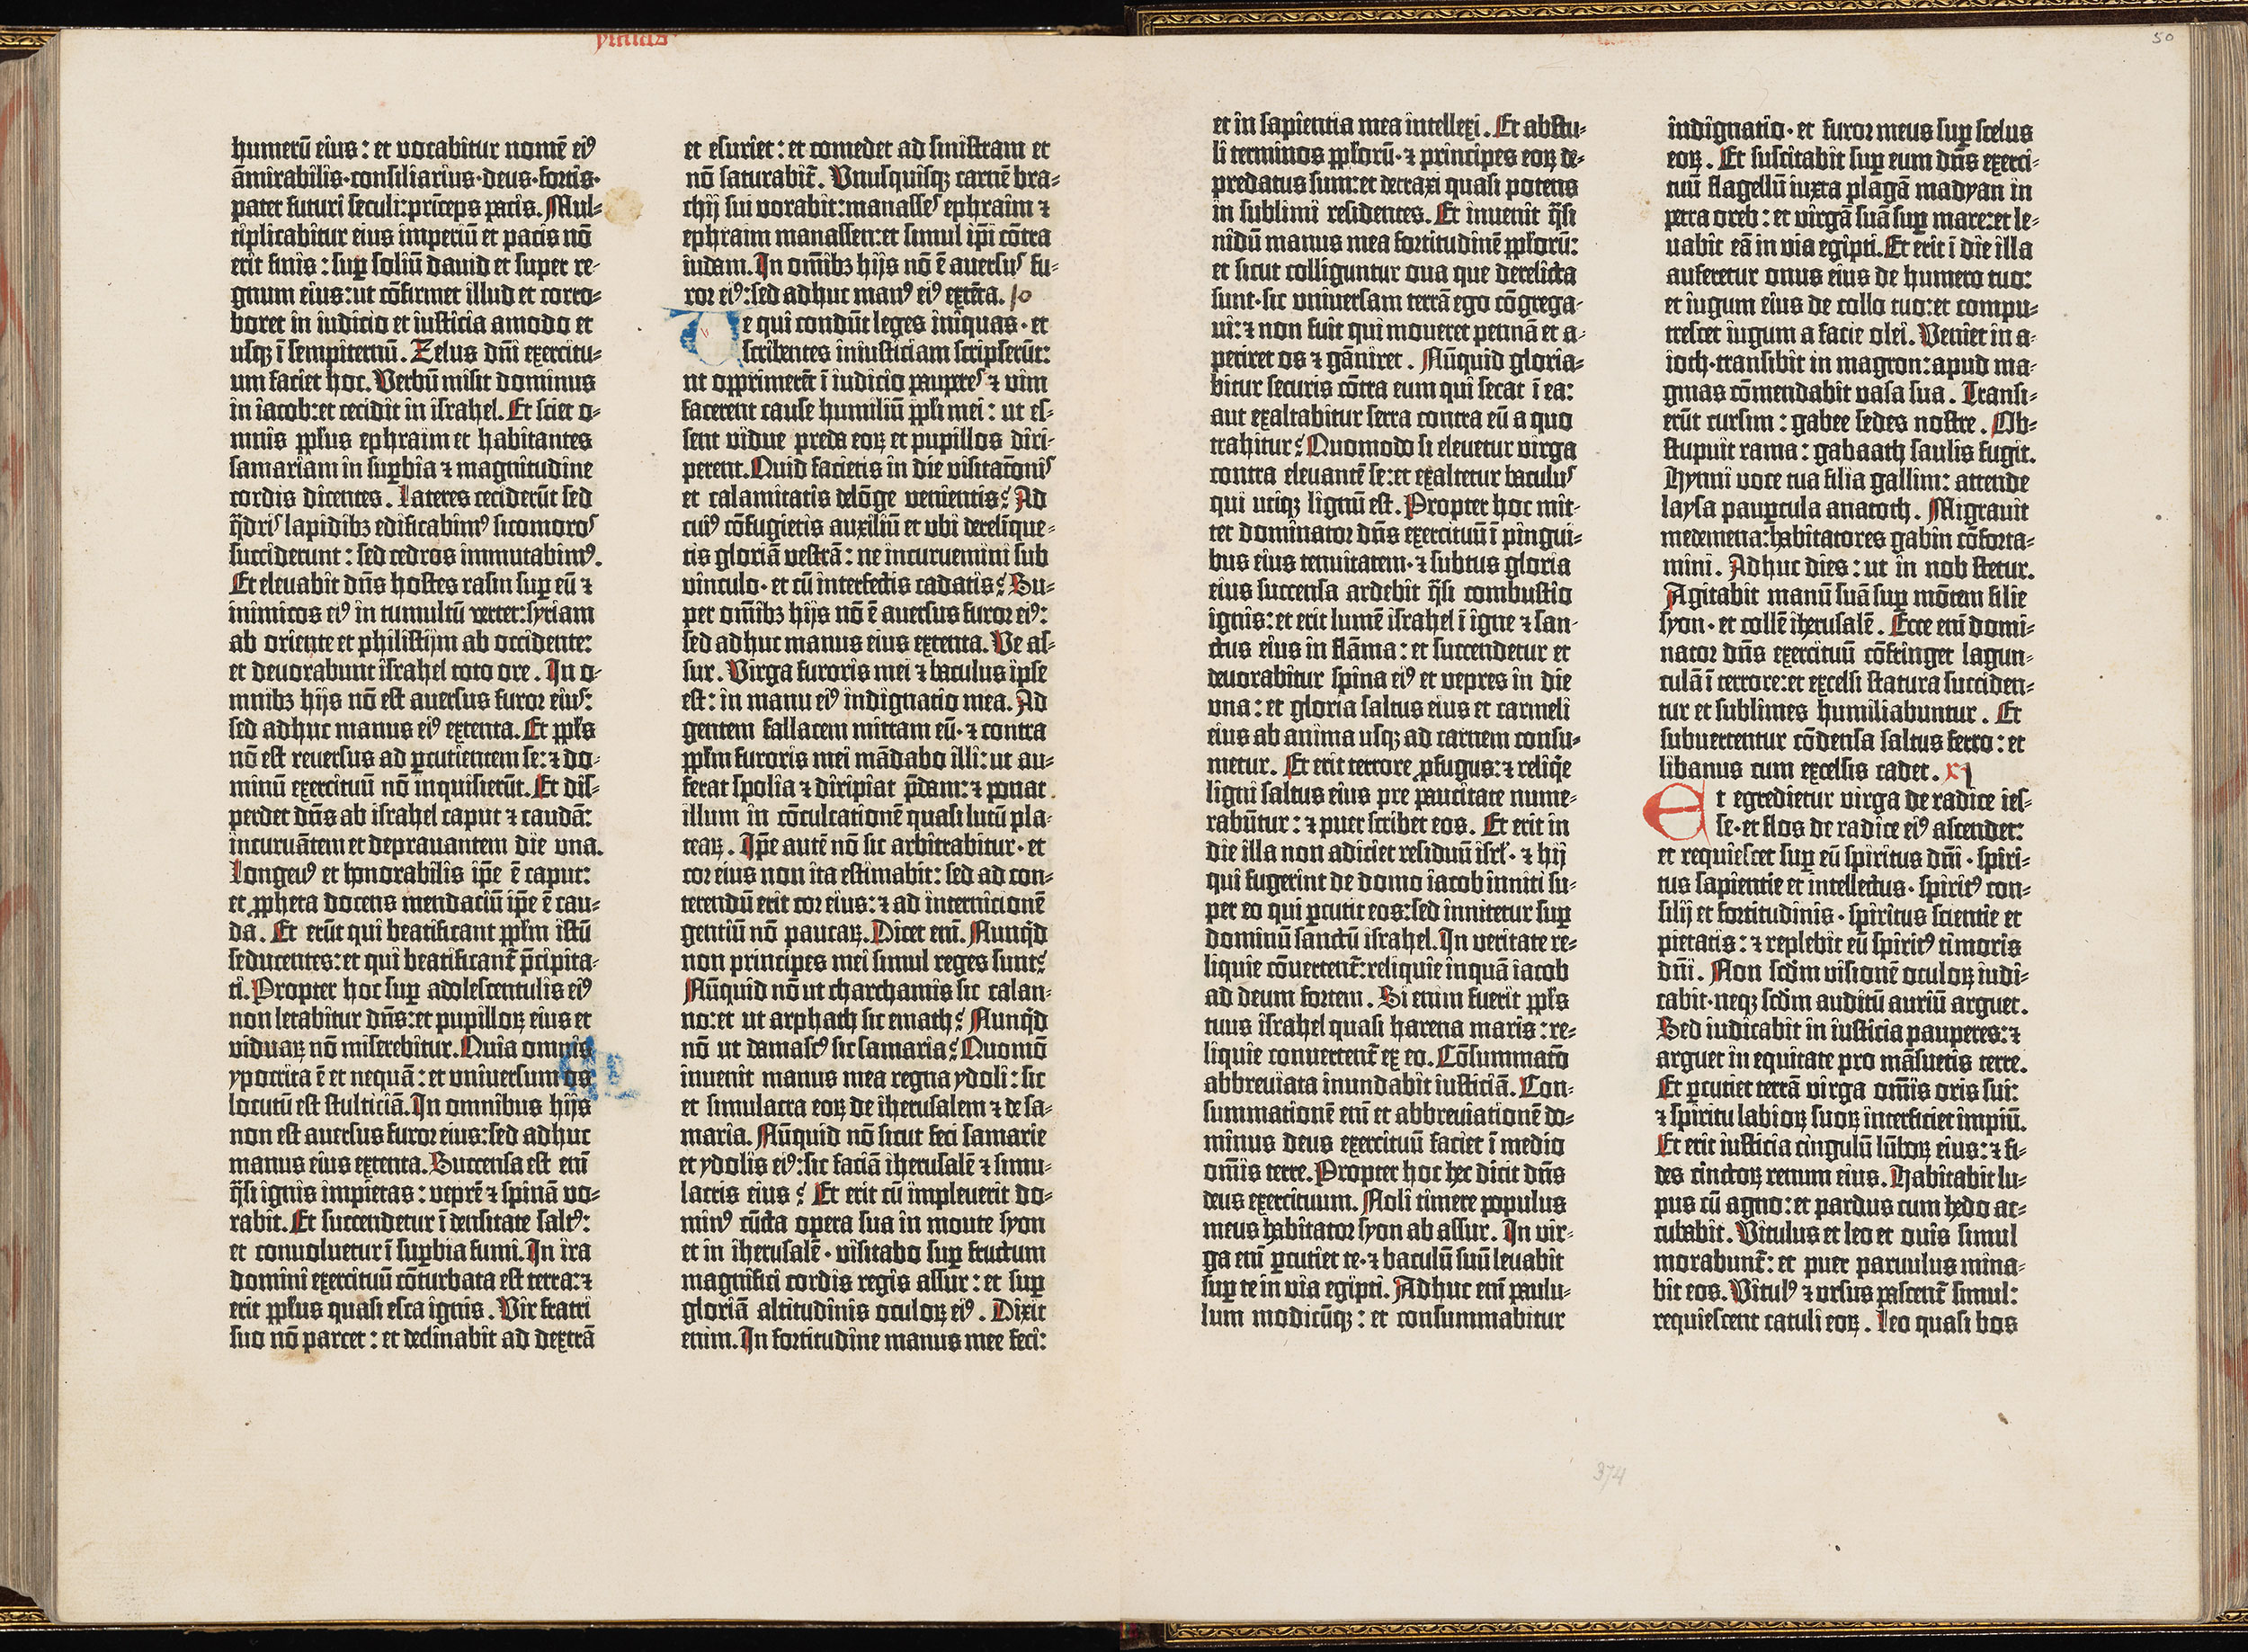 ysaias
50
humerū eius: et vocabitur nomē ei⁹
āmirabilis·consiliarius·deus·fortis·
pater futuri seculi:prīceps pacis. Mul-
tiplicabitur eius imperiū et pacis nō
erit finis: suꝑ soliū dauid et super re-
gnum eius:ut cōfirmet illud et corro-
boret in iudicio et iusticia amodo et
usqꝫ ī sempiternū. Zelus dn̄i exercitu-
um faciet hoc. Verbū misit dominus
in iacob:et cecidit in israhel. Et sciet o-
mnis pp̄lus ephraim et habitantes
samariam in suꝑbia ⁊ magnitudine
cordis dicentes. Lateres ceciderūt sed
q̄dris lapidibꝫ edificabim⁹ sicomoros
succiderunt: sed cedros immutabim⁹.
Et eleuabit dn̄s hostes rasin suꝑ eū ⁊
inimicos ei⁹ in tumultū vertet:syriam
ab oriente et philistijm ab occidente:
et deuorabunt israhel toto ore. In o-
mnibꝫ hijs nō est auersus furor eius:
sed adhuc manus ei⁹ extenta. Et pp̄ls
nō est reuersus ad ꝑcutientem se:⁊ do-
minū exercituū nō inquisierūt. Et dis-
perdet dn̄s ab israhel caput ⁊ caudā:
incuruātem et deprauantem die una.
Longeu⁹ et honorabilis ip̄e ē caput:
et ꝓpheta docens mendaciū ip̄e ē cau-
da. Et erūt qui beatificant pp̄lm istū
seducentes:et qui beatificant̄ p̄cipita-
ti. Propter hoc suꝑ adolescentulis ei⁹
non letabitur dn̄s:et pupilloꝝ eius et
viduaꝝ nō miserebitur. Quia omnis
ypocrita ē et nequā: et vniuersum os
locutū est stulticiā. In omnibus hijs
non est auersus furor eius:sed adhuc
manus eius extenta. Succensa est enī
q̄si ignis impietas: veprē ⁊ spinā vo-
rabit. Et succendetur ī densitate salt⁹:
et conuoluetur ī suꝑbia fumi. In ira
domini exercituū cōturbata est terra:⁊
erit pp̄lus quasi esca ignis. Vir fratri
suo nō parcet: et declinabit ad dextrā
et esuriet: et comedet ad sinistram et
nō saturabit̄. Vnusquisqꝫ carnē bra-
chij sui vorabit:manasses ephraim ⁊
ephraim manassen:et simul ip̄i cōtra
iudam. In om̄ibꝫ hijs nō ē auersus fu-
ror ei⁹:sed adhuc man⁹ ei⁹ extēta. 10
Ve qui condūt leges iniquas· et
scribentes iniusticiam scripserūt:
ut opprimerēt ī iudicio pauperes ⁊ vim
facerent cause humiliū pp̄li mei: ut es-
sent vidue preda eoꝝ et pupillos diri-
perent. Quid facietis in die visitatōnis
et calamitatis delōge venientis? Ad
cui⁹ cōfugietis auxiliū et vbi derelique-
tis gloriā vestrā: ne incuruemini sub
vinculo· et cū interfectis cadatis? Su-
per om̄ibꝫ hijs nō ē auersus furor ei⁹:
sed adhuc manus eius extenta. Ve as-
sur. Virga furoris mei ⁊ baculus ipse
est: in manu ei⁹ indignatio mea. Ad
gentem fallacem mittam eū·⁊ contra
pp̄lm furoris mei mādabo illi:ut au-
ferat spolia ⁊ diripiat p̄dam:⁊ ponat
illum in cōculcationē quasi lutū pla-
teaꝝ. Ip̄e autē nō sic arbitrabitur· et
cor eius non ita estimabit: sed ad con-
terendū erit cor eius:⁊ ad internicionē
gentiū nō paucaꝝ. Dicet enī. Nunq̄d
non principes mei simul reges sunt?
Nūquid nō ut charchamis sic calan-
no:et ut arphath sic emath? Nunq̄d
nō ut damasc⁹ sic samaria? Quomō
inuenit manus mea regna ydoli: sic
et simulacra eoꝝ de iherusalem ⁊ de sa-
maria. Nūquid nō sicut feci samarie
et ydolis ei⁹:sic faciā iherusalē ⁊ simu-
lacris eius? Et erit cū impleuerit do-
min⁹ cūcta opera sua in monte syon
et in iherusalē· visitabo suꝑ fructum
magnifici cordis regis assur: et suꝑ
gloriā altitudinis oculoꝝ ei⁹. Dixit
enim. In fortitudine manus mee feci:
et in sapientia mea intellexi. Et abstu-
li terminos pp̄lorū·⁊ principes eoꝝ de-
predatus sum:et detraxi quasi potens
in sublimi residentes. Et inuenit q̄si
nidū manus mea fortitudinē pp̄lorū:
et sicut colliguntur oua que derelicta
sunt·sic vniuersam terrā ego cōgrega-
ui:⁊ non fuit qui moueret pennā et a-
periret os ⁊ gāniret. Nūquid gloria-
bitur securis cōtra eum qui secat ī ea:
aut exaltabitur serra contra eū a quo
trahitur? Quomodo si eleuetur virga
contra eleuantē se:et exaltetur baculus
qui utiqꝫ lignū est. Propter hoc mit-
tet dominator dn̄s exercituū ī pingui-
bus eius tenuitatem·⁊ subtus gloria
eius succensa ardebit q̄si combustio
ignis:et erit lumē israhel ī igne ⁊ san-
ctus eius in flāma: et succendetur et
deuorabitur spina ei⁹ et vepres in die
vna: et gloria saltus eius et carmeli
eius ab anima usqꝫ ad carnem consu-
metur. Et erit terrore ꝓfugus:⁊ reliq̄e
ligni saltus eius pre paucitate nume-
rabūtur:⁊ puer scribet eos. Et erit in
die illa non adiciet residuū isrl̄·⁊ hij
qui fugerint de domo iacob inniti su-
per eo qui ꝑcutit eos:sed innitetur suꝑ
dominū sanctū israhel. In veritate re-
liquie cōuertent̄:reliquie inquā iacob
ad deum fortem. Si enim fuerit pp̄ls
tuus israhel quasi harena maris:re-
liquie conuertent̄ ex eo. Cōsummatō
abbreuiata inundabit iusticiā. Con-
summationē enī et abbreuiationē do-
minus deus exercituū faciet ī medio
om̄is terre. Propter hoc hec dicit dn̄s
deus exercituum. Noli timere populus
meus habitator syon ab assur. In vir-
ga enī ꝑcutiet te·⁊ baculū suū leuabit
suꝑ te in via egipti. Adhuc enī paulu-
lum modicūqꝫ: et consummabitur
indignatio· et furor meus suꝑ scelus
eoꝝ. Et suscitabit suꝑ eum dn̄s exerci-
tuū flagellū iuxta plagā madyan in
petra oreb: et virgā suā suꝑ mare:et le-
uabit eā in via egipti. Et erit ī die illa
auferetur onus eius de humero tuo:
et iugum eius de collo tuo:et compu-
trescet iugum a facie olei. Veniet in a-
ioth·transibit in magron:apud ma-
gmas cōmendabit vasa sua. Transi-
erūt cursim: gabee sedes nostre. Ob-
stupuit rama: gabaath saulis fugit.
Hynni voce tua filia gallim: attende
laysa pauꝑcula anatoth. Migrauit
medemena:habitatores gabin cōforta-
mini. Adhuc dies: ut in nob stetur.
Agitabit manū suā suꝑ mōtem filie
syon· et collē iherusalē. Ecce enī domi-
nator dn̄s exercituū cōfringet lagun-
culā ī terrore:et excelsi statura succiden-
tur et sublimes humiliabuntur. Et
subuertentur cōdensa saltus ferro: et
libanus cum excelsis cadet. xi
Et egredietur virga de radice ies-
se·et flos de radice ei⁹ ascendet:
et requiescet suꝑ eū spiritus dn̄i· spiri-
tus sapientie et intellectus· spirit⁹ con-
silij et fortitudinis· spiritus scientie et
pietatis:⁊ replebit eū spirit⁹ timoris
dn̄i. Non scd̄m visionē oculoꝝ iudi-
cabit·neqꝫ scd̄m auditū auriū arguet.
Sed iudicabit in iusticia pauperes:⁊
arguet in equitate pro māsuetis terre.
Et ꝑcutiet terrā virga om̄is oris sui:
⁊ spiritu labioꝝ suoꝝ interficiet impiū.
Et erit iusticia cingulū lūboꝝ eius:⁊ fi-
des cinctoꝝ renum eius. Habitabit lu-
pus cū agno:et pardus cum hedo ac-
cubabit. Vitulus et leo et ouis simul
morabunt̄: et puer paruulus mina-
bit eos. Vitul⁹ ⁊ ursus pascent̄ simul:
requiescent catuli eoꝝ. Leo quasi bos
374